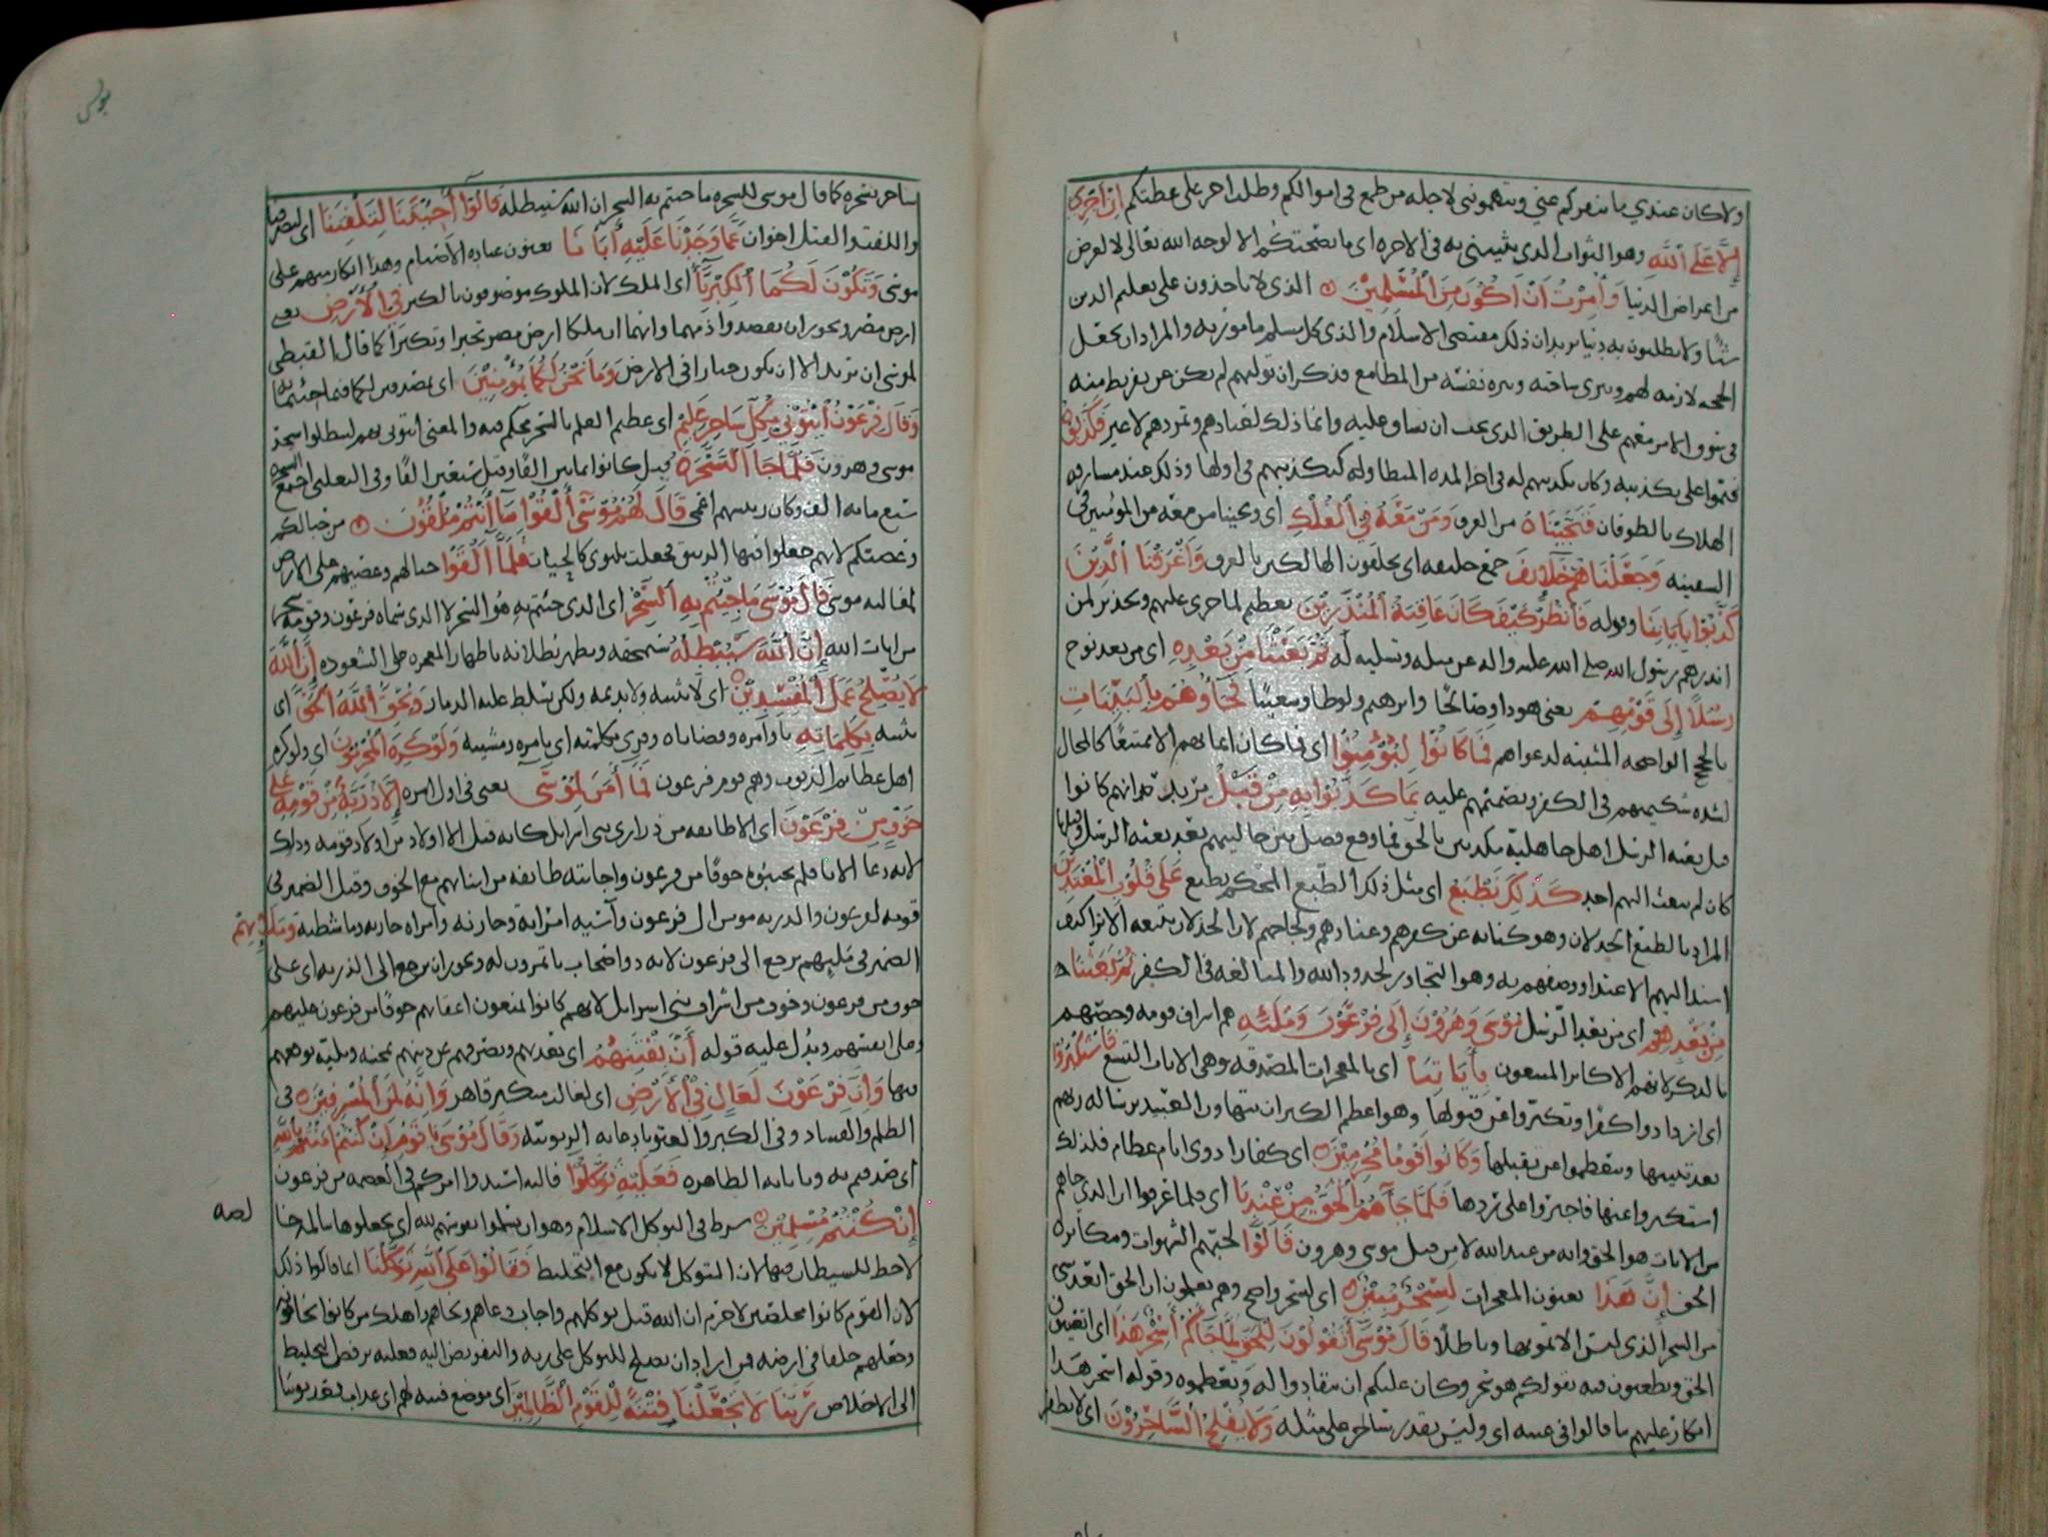 ولا كان عندي ما ينفركم عني وتتهموني لاجله من طمع في اموالكم وطلب اجر على عظتكم إن أجري
إلا على الله وهو الثواب الذي يثيبني به في الآخرة اي ما نصحتكم الا لوجه الله تعالى لا لغرض
من اعراض الدنيا وأمرت أن أكون من المسلمين الذي لا ياخذون على تعليم الدين
شيئا ولا يطلبون به دنيا يريد ان ذلك مقتضى الاسلام والذي كل مسلم مامور به والمراد ان يجعل
الحجة لازمة لهم ويبرى ساحته وبره نفسه من المطامع فذكر ان توليهم لم يكن عن تفريط منه
في سوق الامر معهم على الطريق الذي يجب ان يساق عليه وانما ذلك لعنادهم وتمردهم لا غير فكذبوه
فتموا على تكذيبه وكان تكذيبهم له في اخر المدة المتطاولة كتكذيبهم في اولها وذلك عند مشارفة
الهلاك بالطوفان فنجيناه من الغرق ومن معه في الفلك اي ونجينا من معه من المؤمنين في
السفينة وجعلناهم خلائف جمع خليفة اي يخلفون الهالكين بالغرق وأغرقنا الذين
كذبوا بآياتنا وقوله فانظر كيف كان عاقبة المنذرين تعظيم لما جرى عليهم وتحذير لمن
انذرهم رسول الله صلى الله عليه واله عن مثله وتسلية له ثم بعثنا من بعده اي من بعد نوح
رسلا إلى قومهم يعني هودا وصالحا وابرهيم ولوطا وشعيبا فجاؤهم بالبينات
بالحجج الواضحة المثبتة لدعواهم فما كانوا ليؤمنوا اي فما كان ايمانهم الا ممتنعا كالمحال
لشدة شكيمتهم في الكفر وتصميمهم عليه بما كذبوا به من قبل يريد انهم كانوا
قبل بعثة الرسل اهل جاهلية مكذبين بالحق فما وقع فصل بين حاليهم بعد بعثة الرسل وقبلها
كان لم يبعث اليهم احد كذلك نطبع اي مثل ذلك الطبع المحكم نطبع على قلوب المعتدين
المراد بالطبع الخذلان وهو كناية عن كفرهم وعنادهم ولجاجهم لان الخذلان يتبعه الا ترا كيف
اسند اليهم الاعتدا ووصفهم به وهو التجاوز لحدود الله والمبالغة في الكفر ثم بعثنا
من بعدهم اي من بعد الرسل موسى وهرون إلى فرعون وملئه هم اشراف قومه وخصهم
بالذكر لانهم الاكابر المتبعون بآياتنا اي بالمعجزات المصدقة وهي الايات التسع فاستكبروا
اي ازدادوا كفرا وتكبروا عن قبولها وهو اعظم الكبر ان يتهاون العبيد برسالة ربهم
بعد تبينها ويتعظموا عن تقبلها وكانوا قوما مجرمين اي كفارا ذوي اثام عظام فلذلك
استكبروا عنها فاجتروا على ردها فلما جآءهم الحق من عندنا اي فلما عرفوا ان الذي جاهم
من الايات هو الحق وانه من عند الله لا من قبل موسى وهرون قالوا لحبهم الشهوات ومكابرة
الحق إن هذا يعنون المعجزات لسحر مبين اي لسحر واضح وهم يعلمون ان الحق ابعد شي
من السحر الذي ليس الا تمويها وباطلا قال موسى أتقولون للحق لما جاءكم أسحر هذا اي اتعيبون
الحق وتطعنون فيه بقولكم هو سحر وكان عليكم ان تنقادوا له وتعظموه وقوله اسحر هذا
انكار عليهم ما قالوا في عيبه اي وليس يقدر ساحر على مثله ولا يفلح الساحرون اي لا يظفر
يونس
ساحر بسحره كما قال موسى للسحرة ما جئتم به السحر ان الله سيبطله قالوا أجئتنا لتلفتنا اي لتصرفنا
واللفت والفتل اخوان عما وجدنا عليه آباءنا يعنون عبادة الاصنام وهذا انكار منهم على
موسى وتكون لكما الكبرياء اي الملك لان الملوك موصوفون بالكبر في الأرض يعني
ارض مصر ويجوز ان يقصدوا ذمهما وانهما ان ملكا ارض مصر تجبرا وتكبرا كما قال القبطي
لموسى ان تريد الا ان تكون جبارا في الارض وما نحن لكما بمؤمنين اي بمصدقين لكما فيما جئتما به
وقال فرعون ائتوني بكل ساحر عليم اي عظيم العلم بالسحر محكم فيه والمعنى ائتوني بهم ليبطلوا سحر
موسى وهرون فلما جاء السحرة قيل كانوا ثمانين الفا وقيل سبعين الفا وفي الثعلبي اجتمع السحرة
سبع مائة الف وكان رئيسهم اعمى قال لهم موسى ألقوا ما أنتم ملقون من حبالكم
وعصيكم لانهم جعلوا فيها الزيبق فجعلت تلتوي كالحيات فلما ألقوا حبالهم وعصيهم على الارض
لمغالبة موسى قال موسى ما جئتم به السحر اي الذي جئتم به هو السحر لا الذي سماه فرعون وقومه سحرا
من ايات الله إن الله سيبطله سيمحقه ويظهر بطلانه باظهار المعجزة على الشعوذة إن الله
لا يصلح عمل المفسدين اي لا يثبته ولا يديمه ولكن يسلط عليه الدمار ويحق الله الحق اي
يثبته بكلماته باوامره وقضاياه وقرئ بكلمته اي بامره ومشيته ولو كره المجرمون اي ولو كره
اهل عظائم الذنوب وهم قوم فرعون فما آمن لموسى يعني في اول امره إلا ذرية من قومه على
خوف من فرعون اي الا طائفة من ذراري بني اسرائل كانه قيل الا اولاد من اولاد قومه وذلك
لانه دعا الابا فلم يجيبوه خوفا من فرعون واجابته طائفة من ابنائهم مع الخوف وقيل الضمير في
قومه لفرعون والذرية مومن ال فرعون وآسية امراته وخازنه وامراة خازنه وماشطته وملئهم
الضمير في مليهم يرجع الى فرعون لانه ذو اصحاب ياتمرون له ويجوز ان يرجع الى الذرية اي على
خوف من فرعون وخوف من اشراف بني اسرايل لانهم كانوا يمنعون اعقابهم خوفا من فرعون عليهم
وعلى انفسهم ويدل عليه قوله أن يفتنهم اي يعذبهم ويصرفهم عن دينهم بمحنة وبلية يوقعهم
فيها وإن فرعون لعال في الأرض اي لغالب متكبر قاهر وإنه لمن المسرفين في
الظلم والفساد وفي الكبر والعتو بادعائه الربوبية وقال موسى يا قوم إن كنتم آمنتم بالله
اي صدقتم به وباياته الظاهرة فعليه توكلوا فاليه اسندوا امركم في العصمة من فرعون
إن كنتم مسلمين شرط في التوكل الاسلام وهو ان يسلموا نفوسهم لله اي يجعلوها سالمة خا
لصة
لا حظ للشيطان فيها لان التوكل لا يكون مع التخليط فقالوا على الله توكلنا انما قالوا ذلك
لان القوم كانوا مخلصين لا جرم ان الله قبل توكلهم واجاب دعاهم ونجاهم واهلك من كانوا يخافونه
وجعلهم خلفا في ارضه فمن اراد ان يصلح للتوكل على ربه والتفويض اليه فعليه برفض التخليط
الى الاخلاص ربنا لا تجعلنا فتنة للقوم الظالمين اي موضع فتنة لهم اي عذاب يعذبوننا